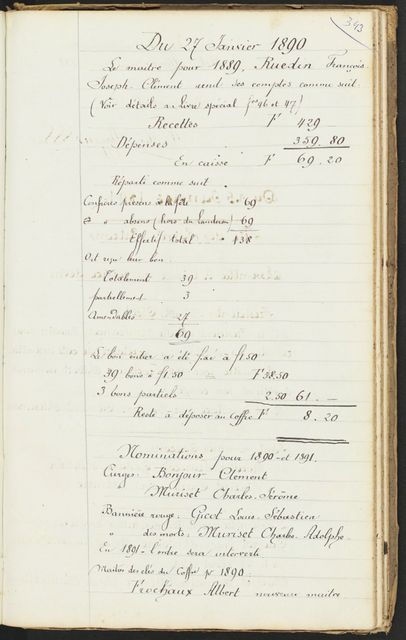 343
Du 27 Janvier 1890
Le maitre pour 1889, Ruedin François
Joseph-Clément rend ses comptes comme suit
(Voir détails au livre special fos 46 et 47)
Recettes Fr 429
Dépenses 359.80
En caisse Fr 69.20
Réparti comme suit.
Confrères présens à la fête 69
" absens (hors du Landeron) 69
Effectif total 138
Ont reçu leur bon
Totalement 39
partiellement 3
Amendables 27
69
Le bon entier a été fixé à f 1.50
39 bons à f 1.50 = F 58.50
3 bons partiels 2.50 61.—
Reste à déposer au Coffre Fr 8.20
Nominations pour 1890 et 1891.
Cierges: Bonjour Clément
Muriset Charles-Jérôme
Bannière rouge: Gicot Louis-Sébastien
" des morts: Muriset Charles-Adolphe
En 1891 l'ordre sera interverti
Maître des clés du Coffre pr 1890
Frochaux Albert nouveau maitre